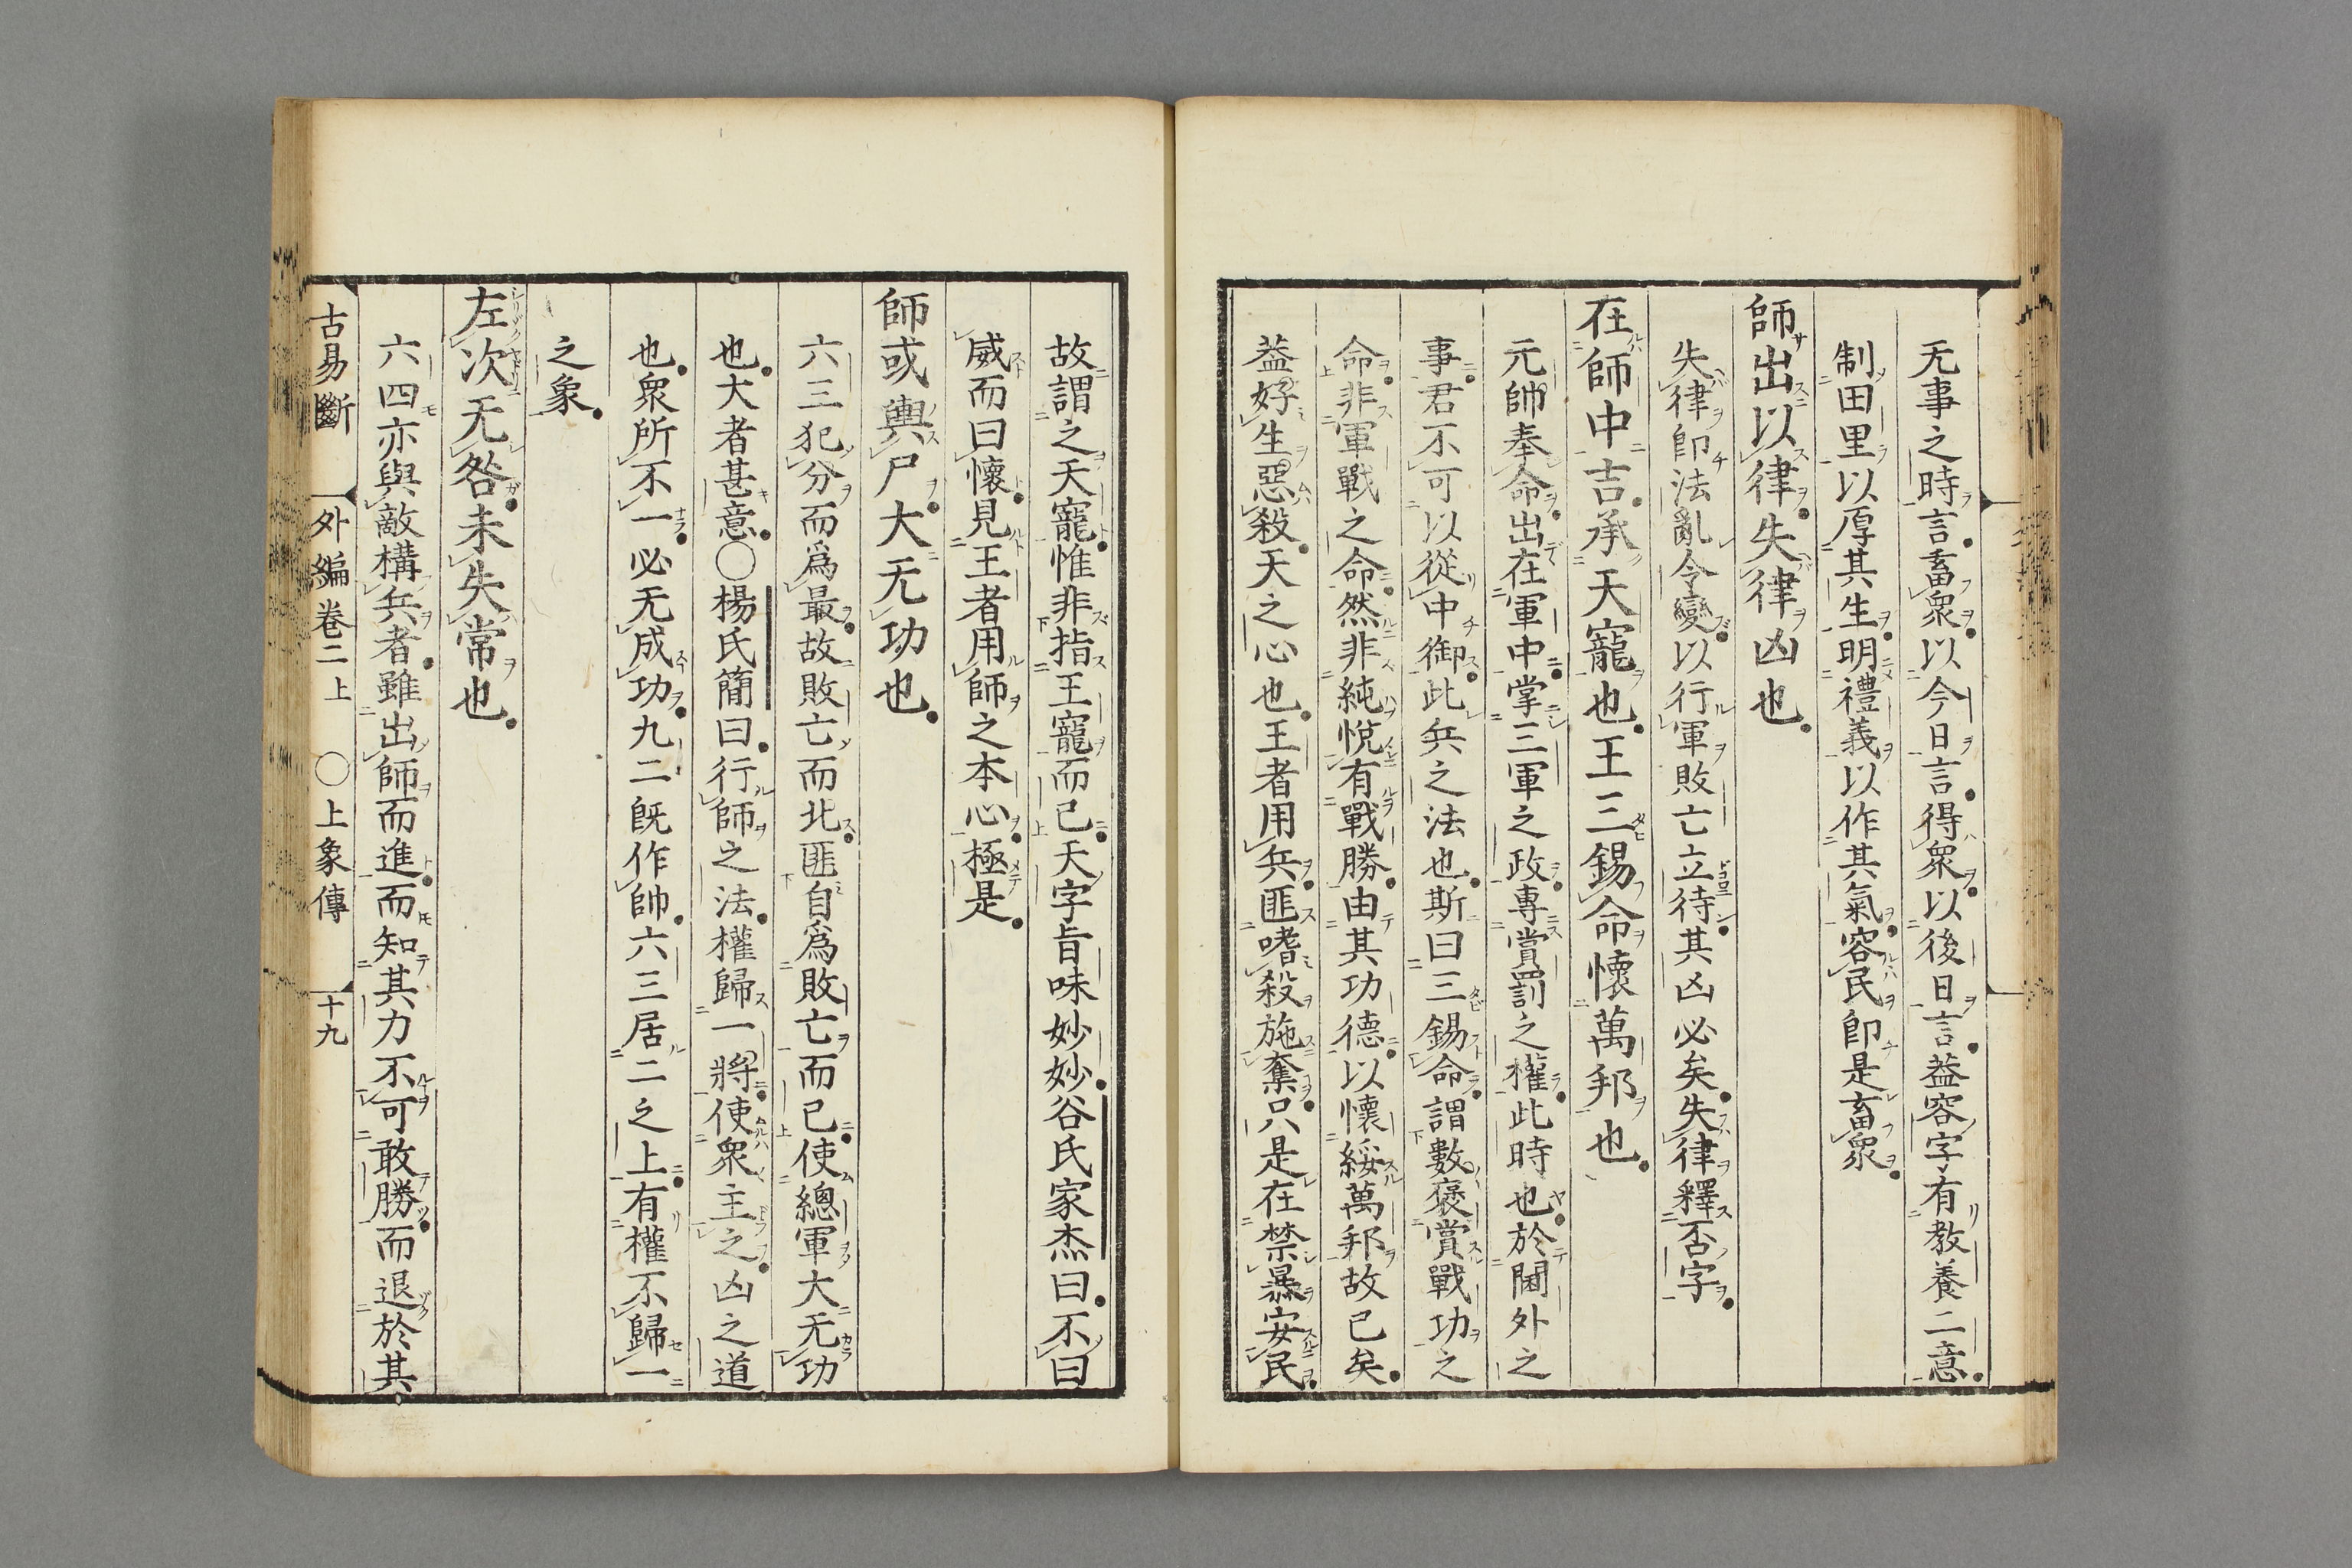 无事之時言畜衆以今日言得衆以後日言葢容字有教養二意
制田里以厚其生明禮義以作其氣容民卽是畜衆
師出以律失律凶也
失律卽法亂令變以行軍敗亡立待其凶必矣失律釋否字
在師中吉承天寵也王三錫命懷萬邦也
元帥奉命出在軍中掌三軍之政專賞罰之權此時也於閫外之
事君不可以從中御此兵之法也斯曰三錫命謂數褒賞戰功之
命非軍戰之命然非純悅有戰勝由其功德以懷綏萬邦故已矣
葢好生惡殺天之心也王者用兵匪嗜殺施奪只是在禁暴安民
故謂之天寵惟非指王寵而已天字旨味妙妙谷氏家杰曰不曰
威而曰懷見王者用師之本心極是
師或輿尸大无功也
六三犯分而爲最故敗亡而北匪自爲敗亡而已使總軍大无功
也大者甚意〇楊氏簡曰行師之法權歸一將使衆主之凶之道
也衆所不一必无成功九二旣作帥六三居二之上有權不歸一
之象
左次无咎未失常也
六四亦與敵構兵者雖出師而進而知其力不可敢勝而退於其
古易斷 外編卷二上 〇上象傳 十九